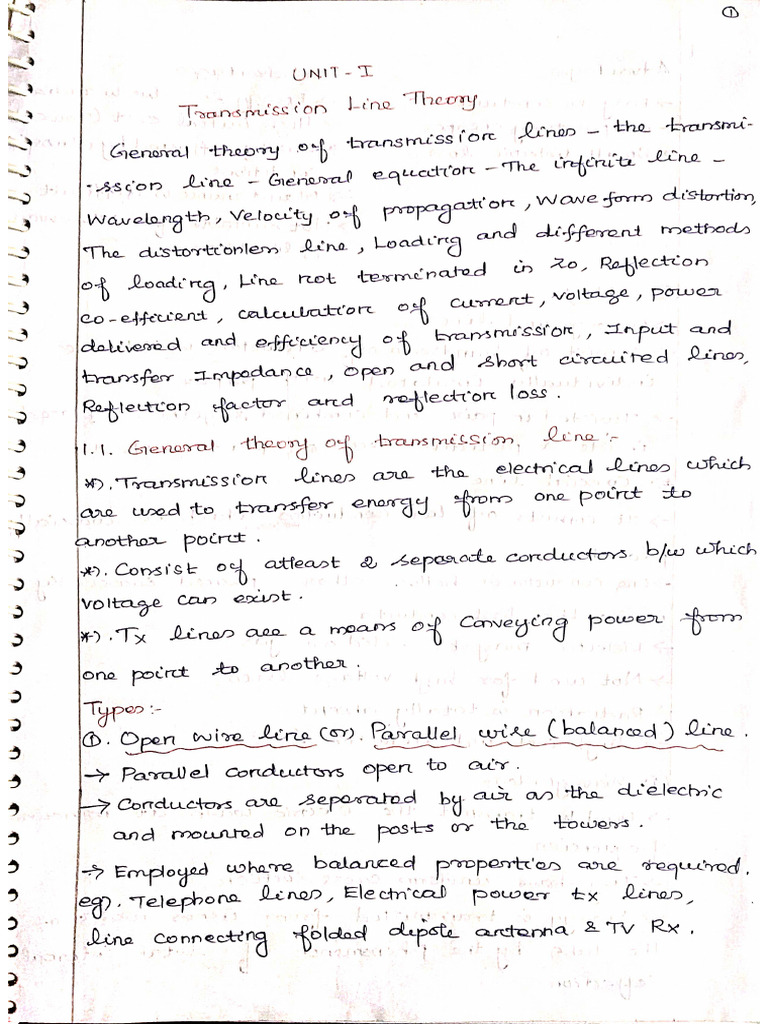 ①
UNIT - I
Transmission Line Theory
General theory of transmission lines - the transmi-
-ssion line - General equation - The infinite line -
Wavelength, Velocity of propagation, Wave form distortion,
The distortionless line, Loading and different methods
of loading, Line not terminated in Zo, Reflection
co-efficient, calculation of current, voltage, power
delivered and efficiency of transmission, Input and
transfer Impedance, open and short circuited lines,
Reflection factor and reflection loss.
1.1. General theory of transmission line:-
*). Transmission lines are the electrical lines which
are used to transfer energy from one point to
another point.
*). Consist of atleast 2 separate conductors b/w which
voltage can exist.
*). Tx lines are a means of conveying power from
one point to another.
Types:-
①. Open wire line (or). Parallel wire (balanced) line.
→ Parallel conductors open to air.
→ Conductors are seperated by air as the dielectric
and mounted on the posts or the towers.
→ Employed where balanced properties are required.
eg). Telephone lines, Electrical power tx lines,
line connecting folded dipole antenna & TV Rx.